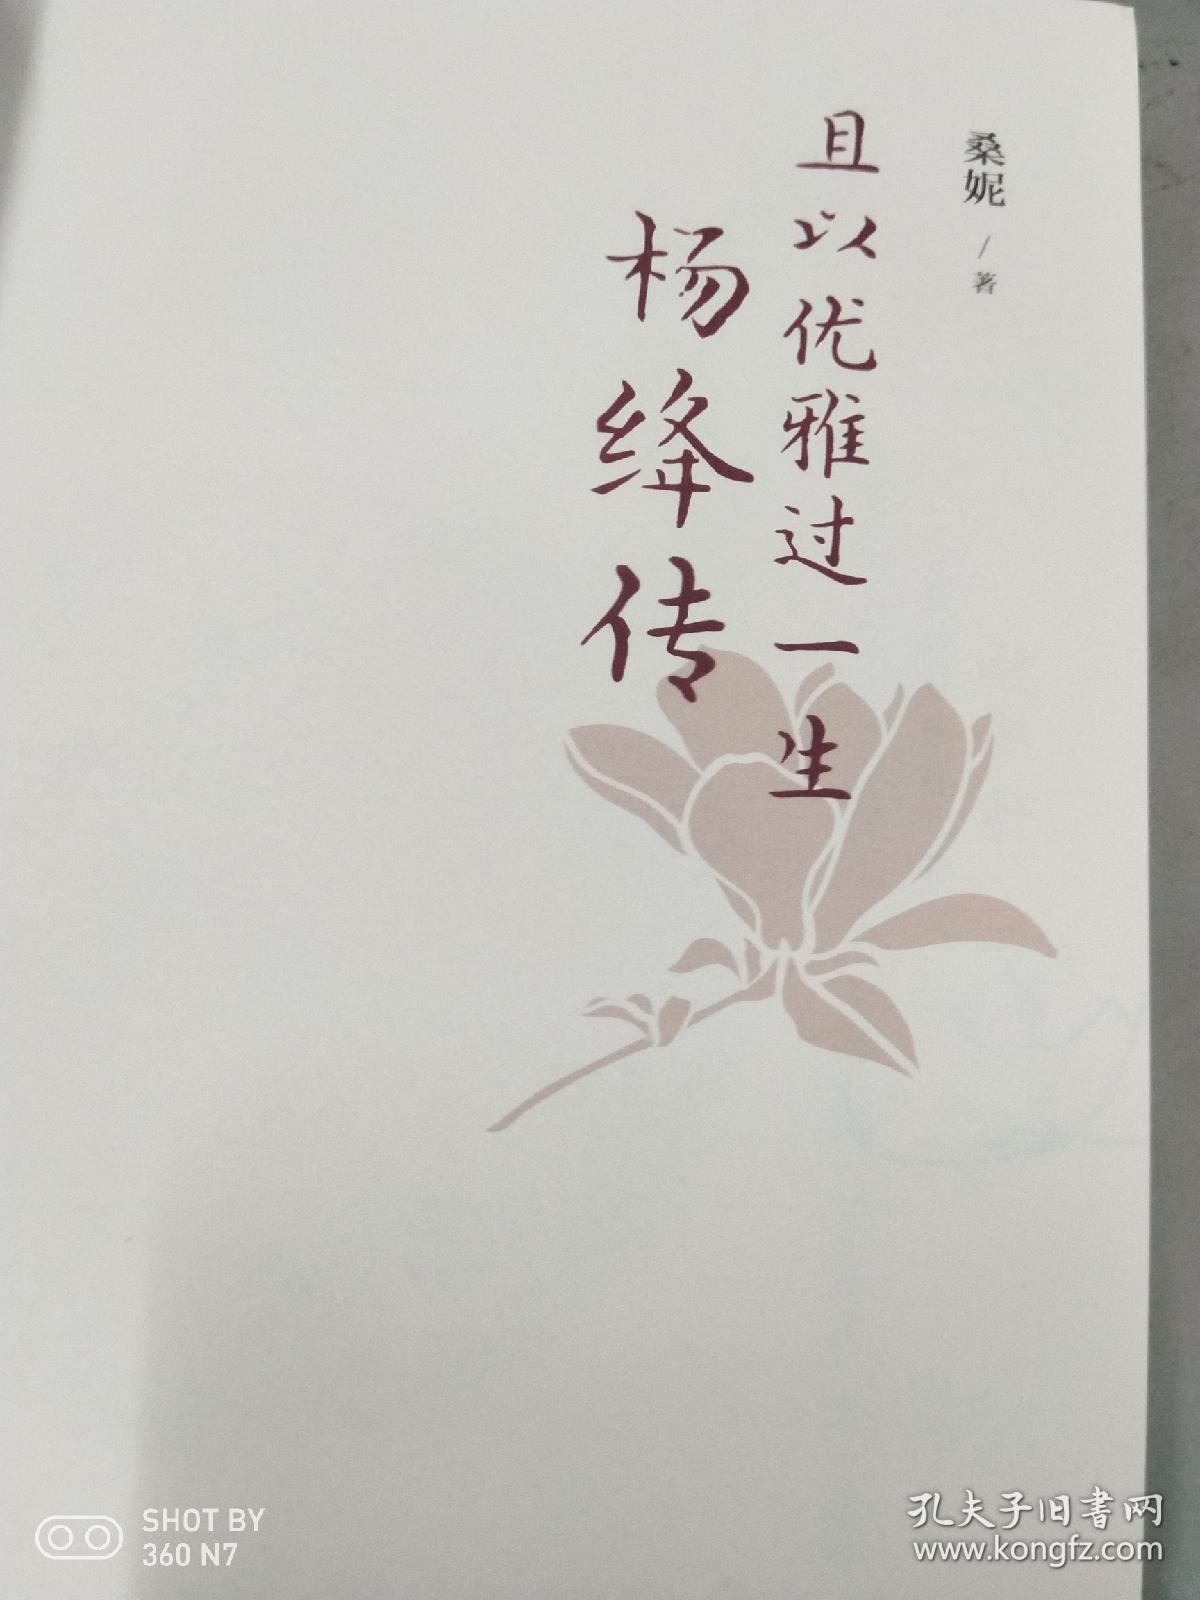 桑妮 / 著
且以优雅过一生
杨绛传
SHOT BY
360 N7
孔夫子旧书网
www.kongfz.com